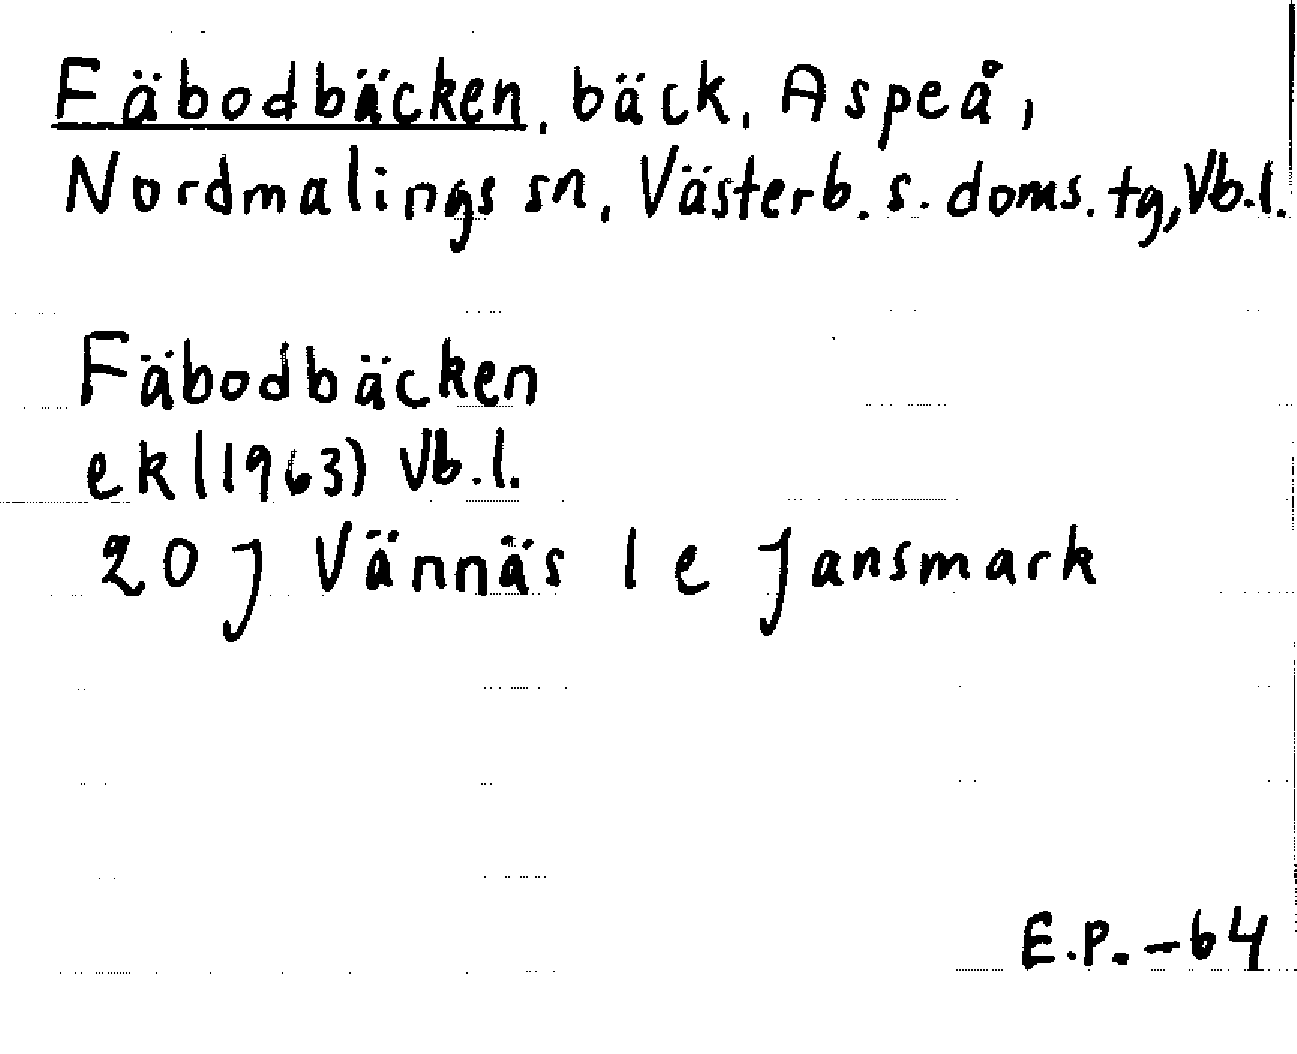 Fäbodbäcken, bäck, Aspeå,
Nordmalings sn, Västerb. s. doms. tg, Vb.l.
Fäbodbäcken
ekl (1963) Vb.l.
20 J Vännäs 1 e Jansmark
E.P. -64